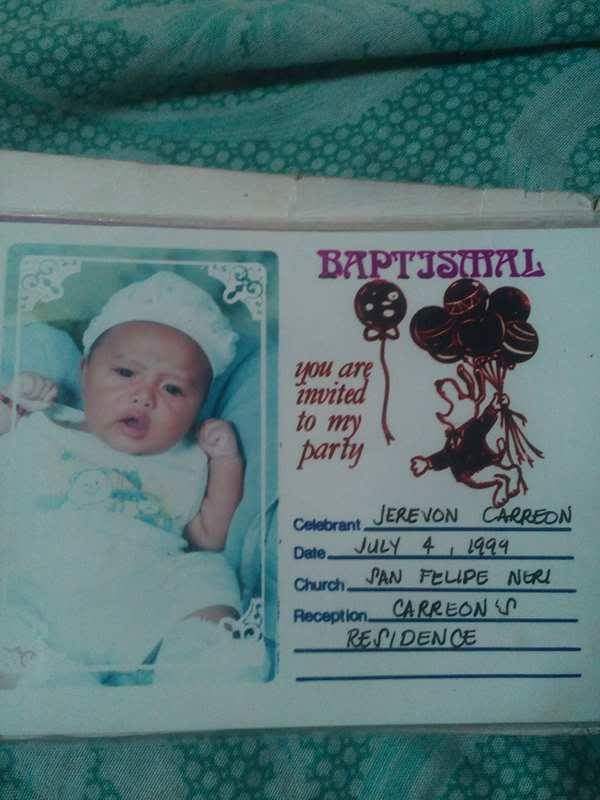 BAPTISMAL
you are
invited
to my
party
Celebrant JEREVON CARREON
Date JULY 4, 1999
Church SAN FELIPE NERI
Reception CARREON'S
RESIDENCE